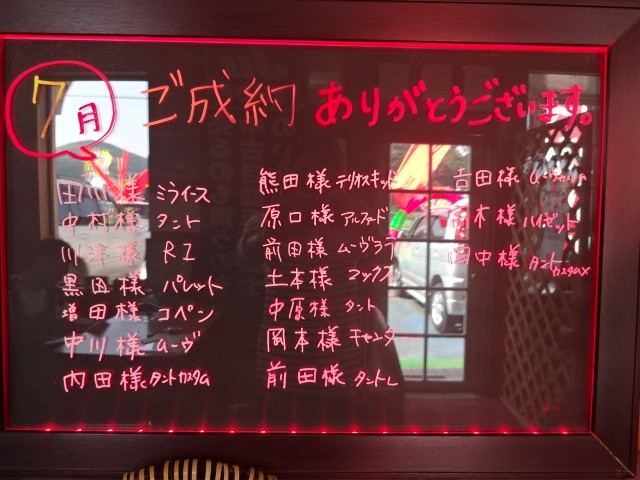 7月 ご成約 ありがとうございます。
田川様 ミライース
中村様 タント
川津様 R1
黒田様 パレット
増田様 コペン
中川様 ムーヴ
内田様 タントカスタム
熊田様 テリオスキッド
原口様 アルファード
前田様 ムーヴラテ
土本様 マックス
中原様 タント
岡本様 キャンター
前田様 タントL
吉田様 ムーヴカスタム
青木様 ハイゼット
田中様 タントカスタムX